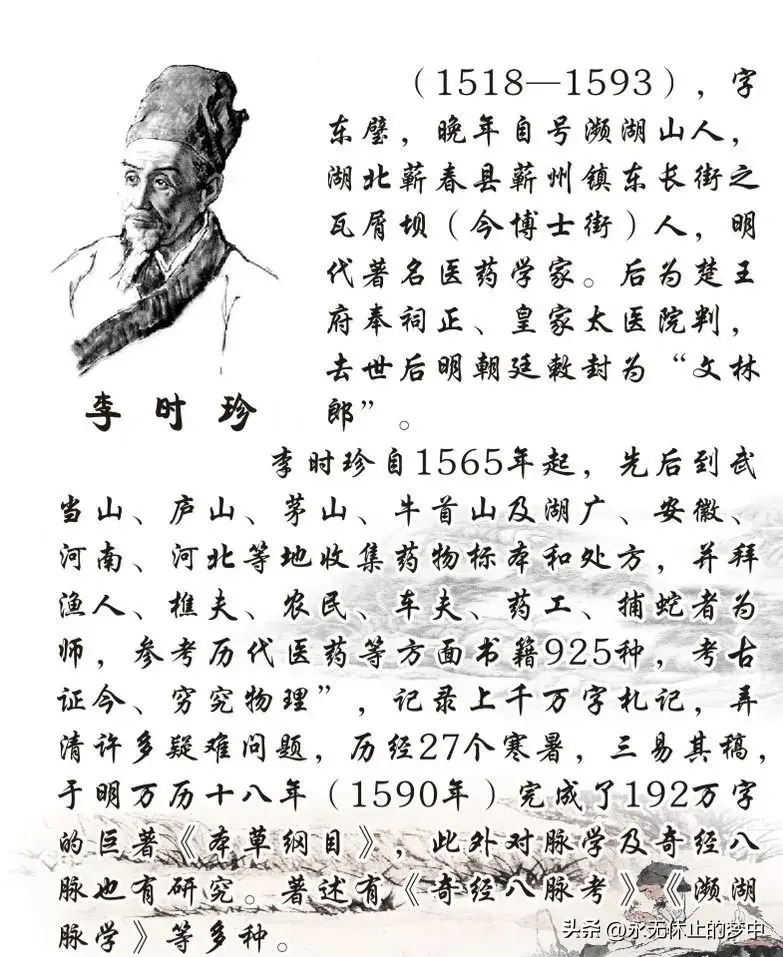 （1518—1593），字
东璧，晚年自号濒湖山人，
湖北蕲春县蕲州镇东长街之
瓦屑坝（今博士街）人，明
代著名医药学家。后为楚王
府奉祠正、皇家太医院判，
去世后明朝廷敕封为“文林
郎”。
李时珍
李时珍自1565年起，先后到武
当山、庐山、茅山、牛首山及湖广、安徽、
河南、河北等地收集药物标本和处方，并拜
渔人、樵夫、农民、车夫、药工、捕蛇者为
师，参考历代医药等方面书籍925种，考古
证今、穷究物理”，记录上千万字札记，弄
清许多疑难问题，历经27个寒暑，三易其稿，
于明万历十八年（1590年）完成了192万字
的巨著《本草纲目》，此外对脉学及奇经八
脉也有研究。著述有《奇经八脉考》《濒湖
脉学》等多种。
头条 @永无休止的梦中